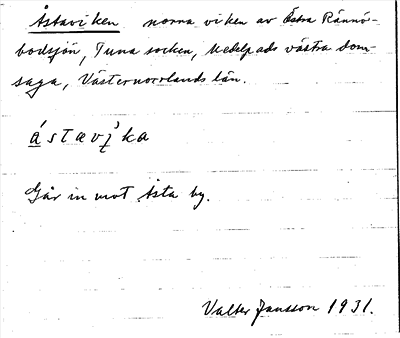 Åstaviken norra viken av Östra Rännö-
bodsjön, Tuna socken, Medelpads västra dom-
saga, Västernorrlands län.
ástavì̹ka
Går in mot Åsta by.
Valter Jansson 1931.